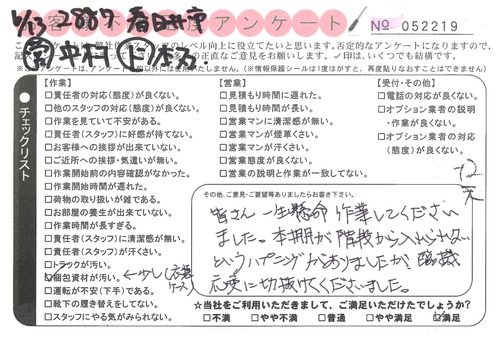 6/13 2887 春日井市
客様不満足度アンケート
No 052219
営 中村
【作業】
□責任者の対応(態度)が良くない。
□他のスタッフの対応(態度)が良くない。
□作業を見ていて不安がある。
□責任者(スタッフ)に好感が持てない。
□お客様への挨拶が出来ていない。
□ご近所への挨拶・気遣いが無い。
□作業開始前の内容確認がなかった。
□作業開始時間が遅れた。
□荷物の取り扱いが雑である。
□お部屋の養生が出来ていない。
□作業時間が長すぎる。
□責任者(スタッフ)に清潔感が無い。
□責任者(スタッフ)が汗くさい。
□トラックが汚い。
□梱包資材が汚い。
□運転が不安(下手)である。
□靴下の履き替えをしてない。
□スタッフにやる気がみられない。
←少し(衣装ケース)
【営業】
□見積もり時間に遅れた。
□見積もり時間が長い。
□営業マンに清潔感が無い。
□営業マンが煙草くさい。
□営業マンが汗くさい。
□営業態度が良くない。
□営業の説明と作業が一致してない。
【受付・その他】
□電話の対応が良くない。
□オプション業者の説明・作業が良くない。
□オプション業者の対応(態度)が良くない。
チェックリスト
その他、ご意見・ご要望等ありましたらお書き下さい。
皆さん一生懸命作業してください
ました。本棚が階段から入れられない
というハプニングがありましたが、臨機
応変に切抜けてくださいました。
☆当社をご利用いただきまして、ご満足いただけたでしょうか?
□不満 □やや不満 □普通 □やや満足 □満足